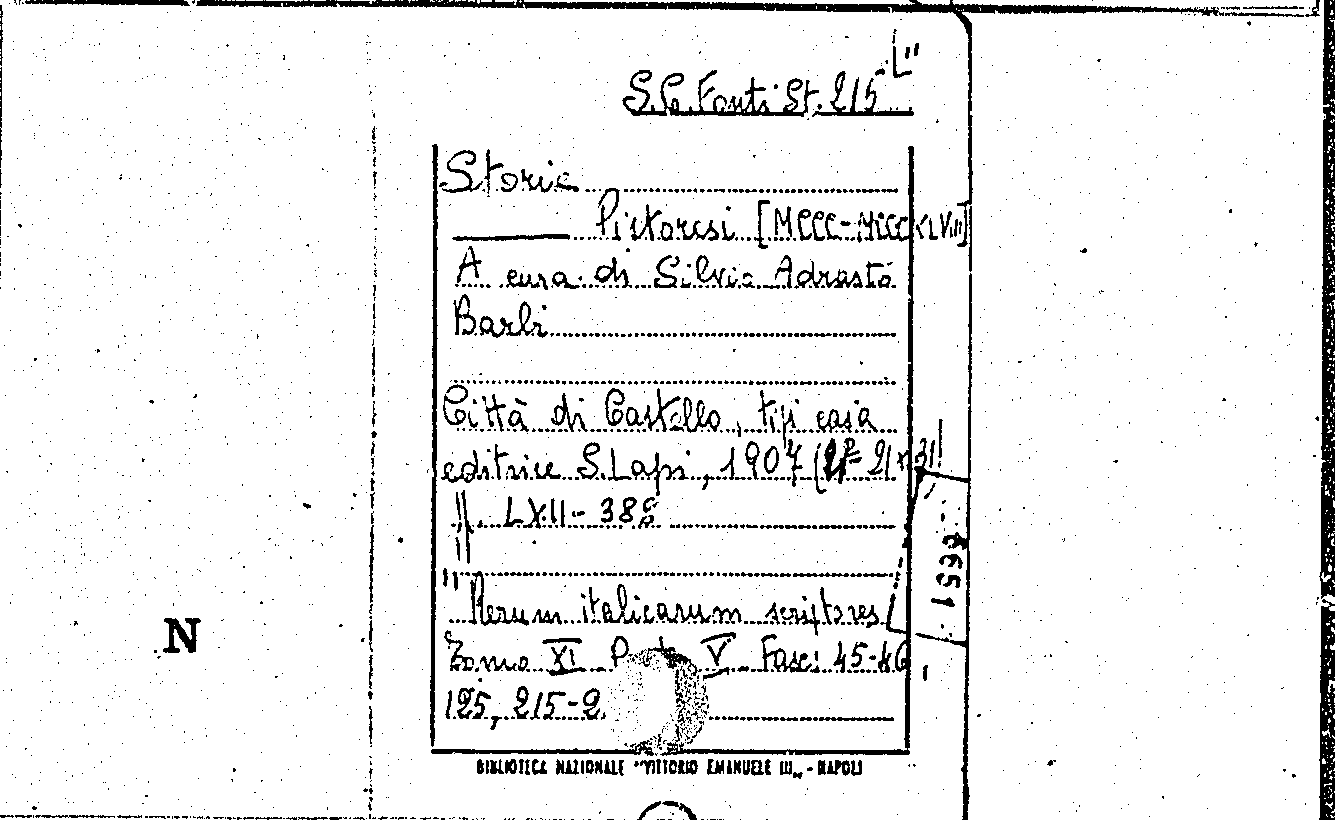 L"
S.C. Fonti St. 215
Storie
Pistoresi [MCCC-MCCCXLVIII]
A cura di Silvio Adrasto
Barbi
Città di Castello, tipi casa
editrice S. Lapi, 1907 21 x 31
LXII - 38
"Rerum italicarum scriptores
Tomo XI Parte V Fasc: 45-46
125, 215-2
BIBLIOTECA NAZIONALE "VITTORIO EMANUELE III„ - NAPOLI
N